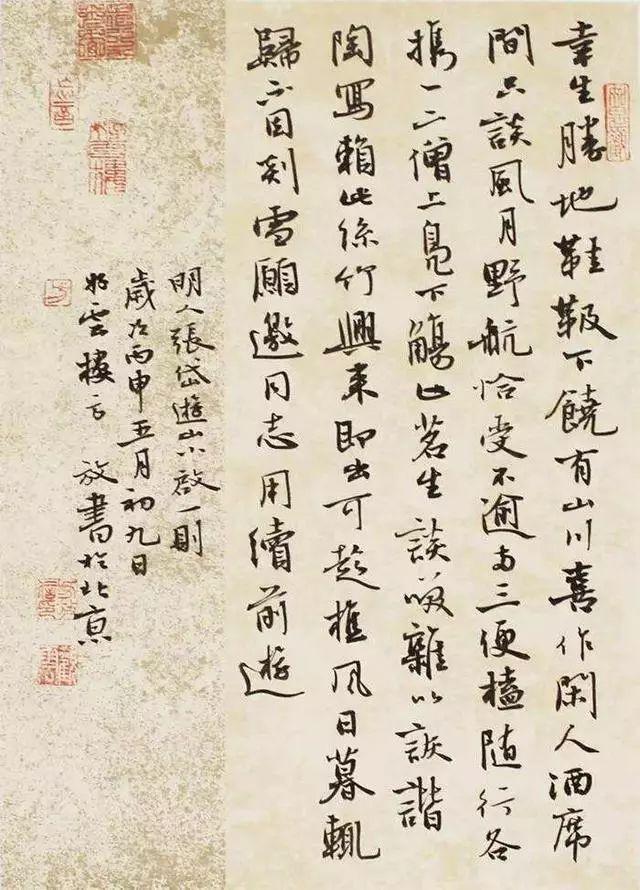 幸生勝地鞋靸下饒有山川喜作閑人酒席
間只談風月野航恰受不逾兩三便榼隨行各
攜一二僧上鳧下觴止茗生談笑雜以詼諧
陶寫賴此絲竹興來即出可趁樵風日暮輒
歸不因剡雪願邀同志用續前遊
明人張岱遊山小啟一則
歲次丙申五月初九日
雲樓方放書於北京